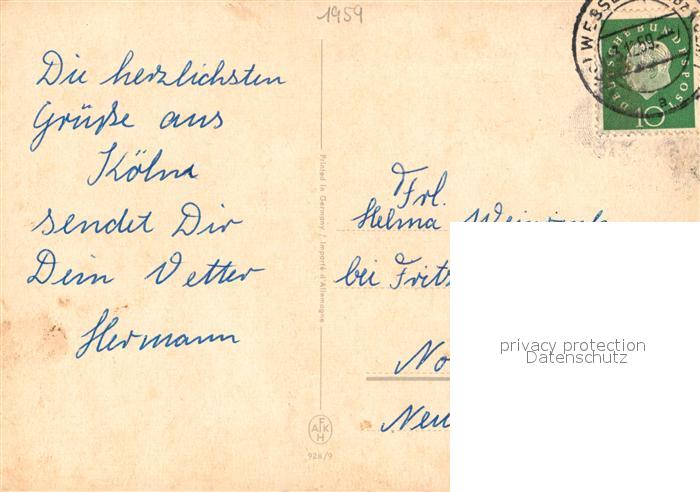 1959
Die herzlichsten
Grüße aus
Köln
sendet Dir
Dein Vetter
Hermann
Printed in Germany / Importé d'Allemagne
AFKH
928/9
DEUTSCHE BUNDESPOST
10
59
a
Frl.
Helma
bei Fritz
No
Neu
privacy protection
Datenschutz